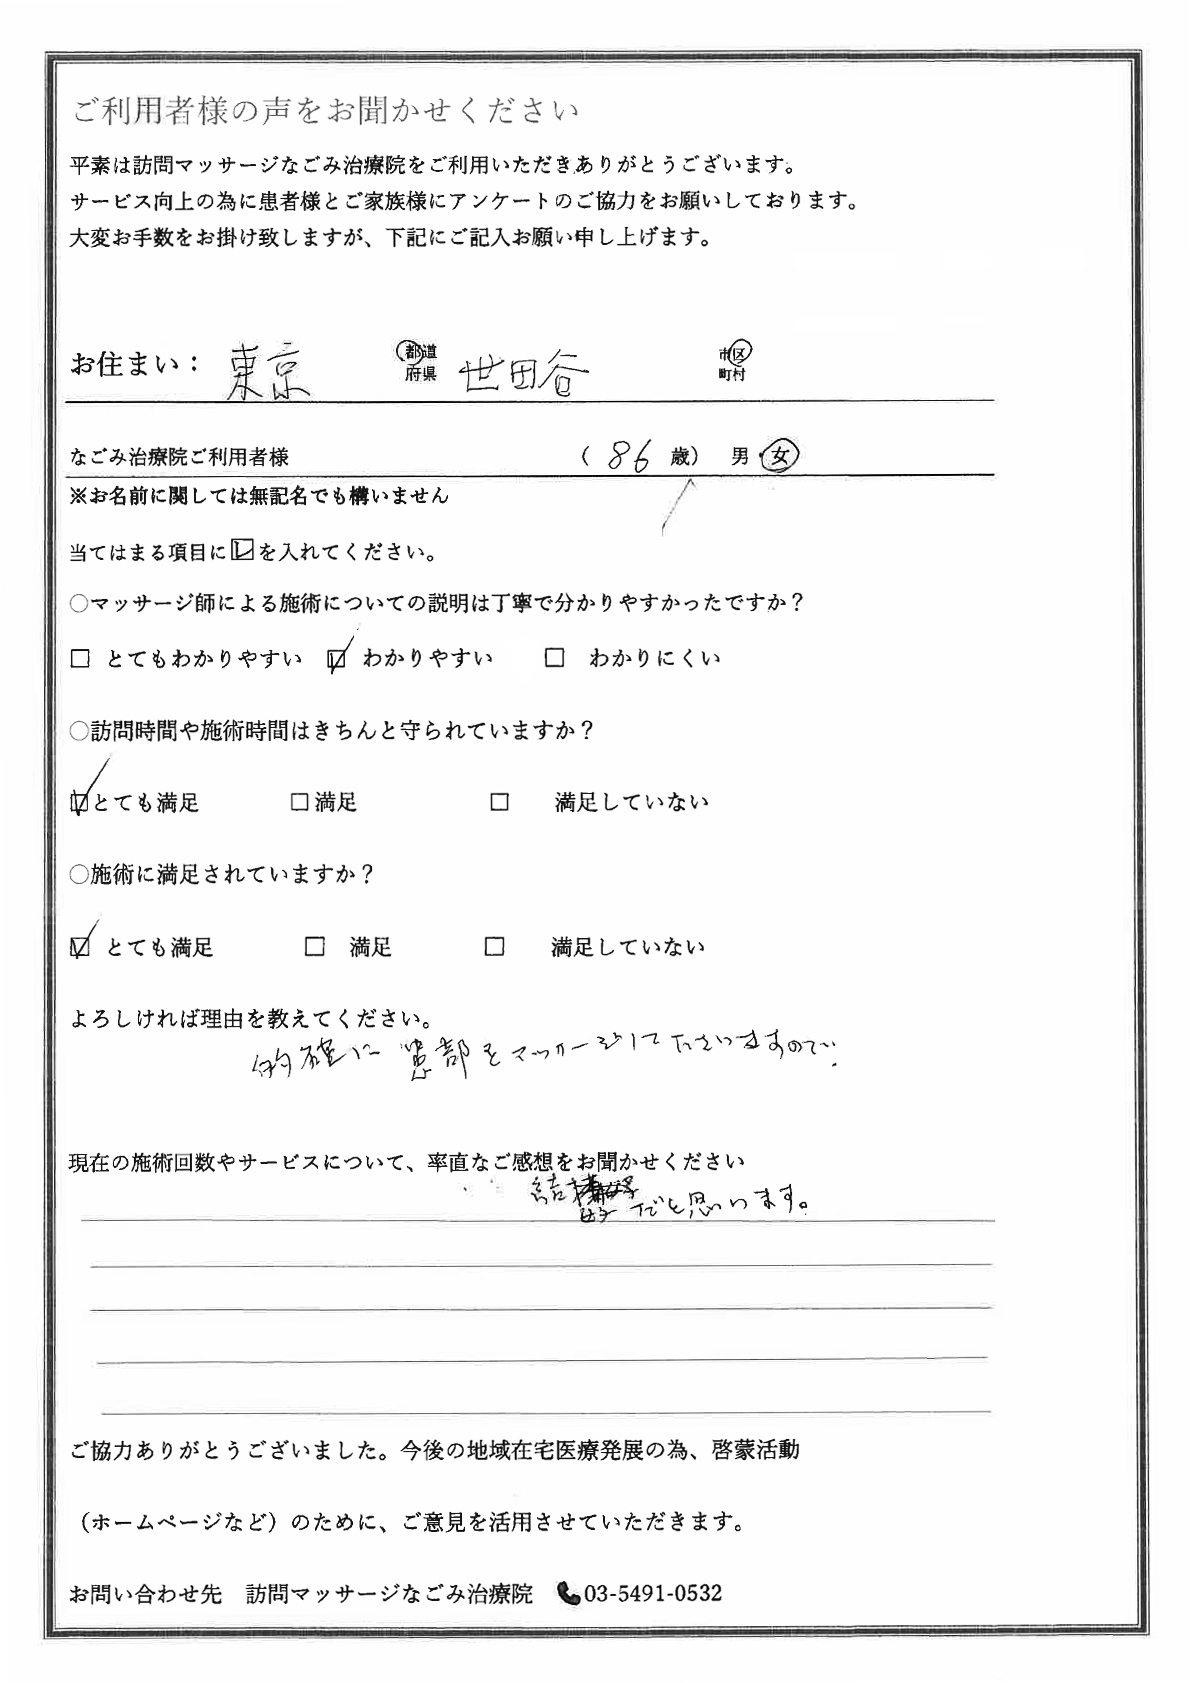 ご利用者様の声をお聞かせください
平素は訪問マッサージなごみ治療院をご利用いただきありがとうございます。
サービス向上の為に患者様とご家族様にアンケートのご協力をお願いしております。
大変お手数をお掛け致しますが、下記にご記入お願い申し上げます。
お住まい： 東京 都道府県 世田谷 市区町村
なごみ治療院ご利用者様 （ 86 歳） 男・女
※お名前に関しては無記名でも構いません
当てはまる項目に☑を入れてください。
○マッサージ師による施術についての説明は丁寧で分かりやすかったですか？
□ とてもわかりやすい ☑ わかりやすい □ わかりにくい
○訪問時間や施術時間はきちんと守られていますか？
☑とても満足 □満足 □ 満足していない
○施術に満足されていますか？
☑ とても満足 □ 満足 □ 満足していない
よろしければ理由を教えてください。
的確に患部をマッサージして下さいますので.
現在の施術回数やサービスについて、率直なご感想をお聞かせください
結構 だと思います。
ご協力ありがとうございました。今後の地域在宅医療発展の為、啓蒙活動
（ホームページなど）のために、ご意見を活用させていただきます。
お問い合わせ先 訪問マッサージなごみ治療院 📞03-5491-0532